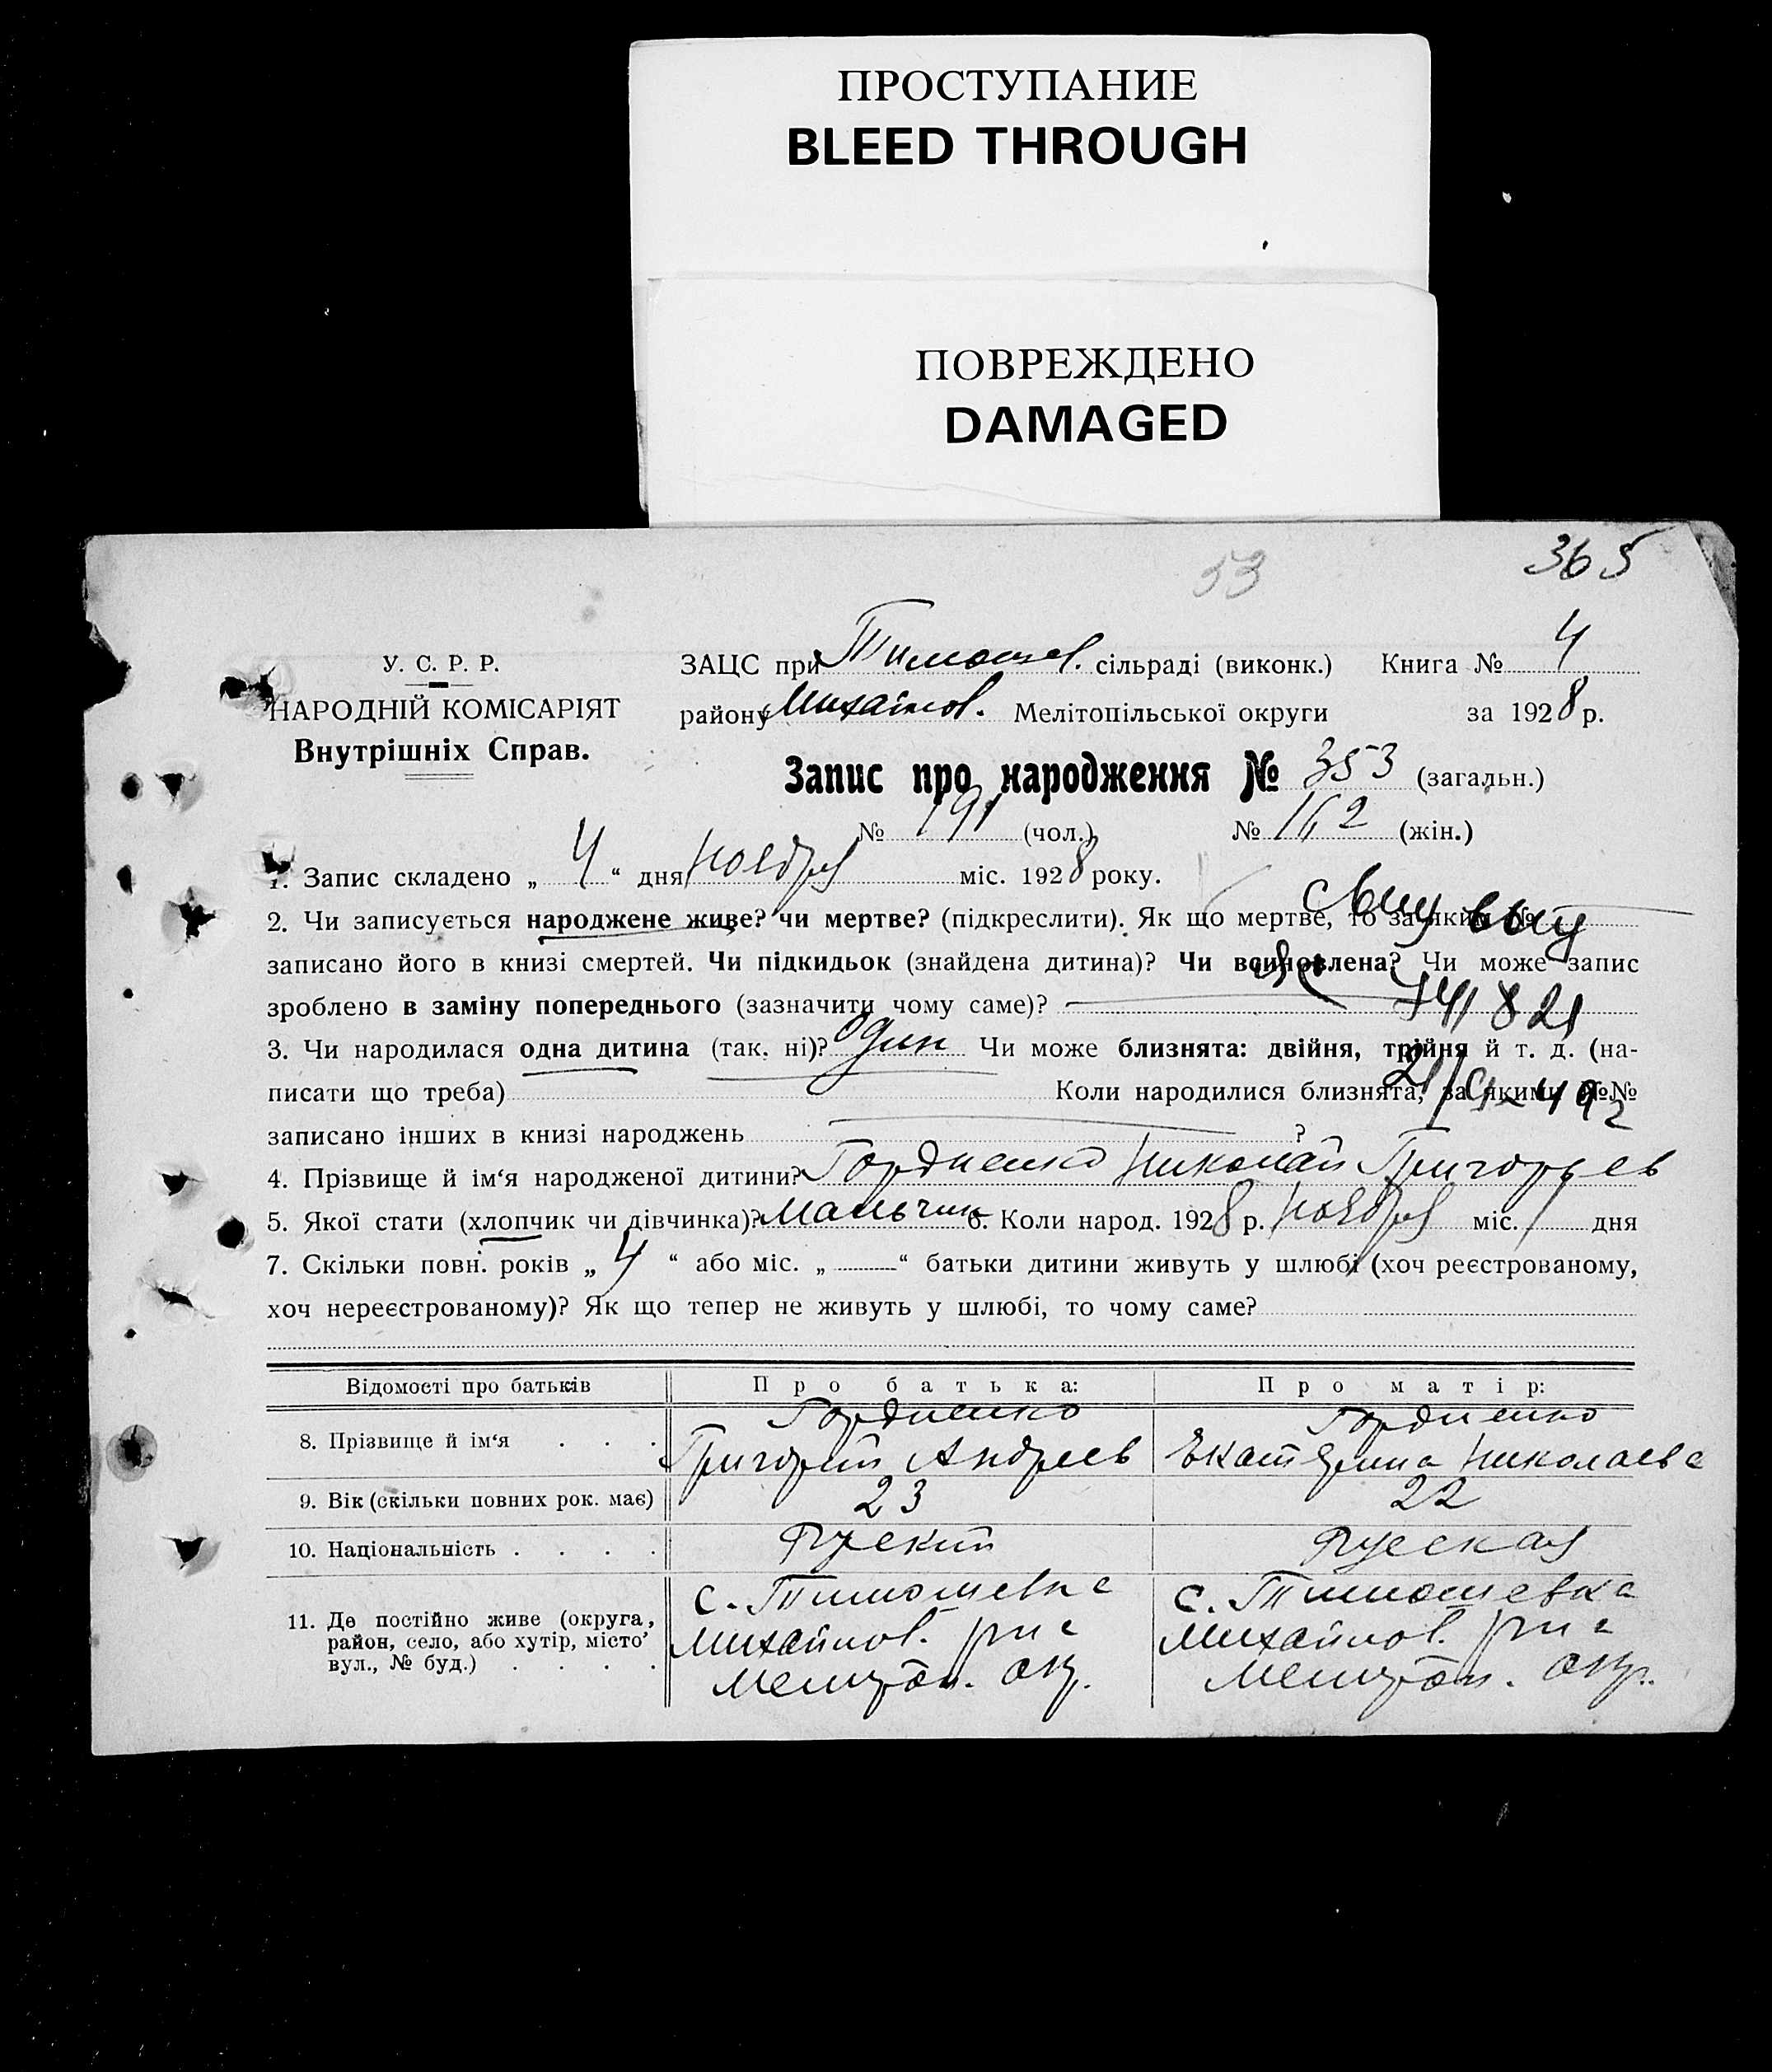 ПРОСТУПАНИЕ
BLEED THROUGH
ПОВРЕЖДЕНО
DAMAGED
53
365
У. С. Р. Р.
НАРОДНІЙ КОМІСАРІЯТ
Внутрішніх Справ.
ЗАЦС при Тимошев. сільраді (виконк.) Книга № 4
району Михайлов. Мелітопільської округи за 1928 р.
Запис про народження № 353 (загальн.)
№ 191 (чол.) № 162 (жін.)
1. Запис складено „ 4 “ дня ноября міс. 1928 року.
2. Чи записується народжене живе? чи мертве? (підкреслити). Як що мертве, то за яким №
записано його в книзі смертей. Чи підкидьок (знайдена дитина)? Чи всиновлена? Чи може запис
зроблено в заміну попереднього (зазначити чому саме)?
3. Чи народилася одна дитина (так, ні)? один Чи може близнята: двійня, трійня й т. д. (на-
писати що треба) Коли народилися близнята, за якими №№
записано інших в книзі народжень ?
4. Прізвище й ім‘я народженої дитини? Гордиенко Николай Григорьев
5. Якої стати (хлопчик чи дівчинка)? Мальчик 6. Коли народ. 1928 р. ноября міс. 1 дня
7. Скільки повн. років „ 4 “ або міс. „ “ батьки дитини живуть у шлюбі (хоч реєстрованому,
хоч нереєстрованому)? Як що тепер не живуть у шлюбі, то чому саме?
Відомості про батьків Про батька: Про матір:
8. Прізвище й ім‘я . . . Гордиенко Григорий Андреев Гордиенко Екатерина Николаева
9. Вік (скільки повних рок. має) 23 22
10. Національність . . . . Руский Руская
11. Де постійно живе (округа, с. Тимошевка с. Тимошевка
район, село, або хутір, місто, Михайлов. р-на Михайлов. р-на
вул., № буд.) . . . . Мелитоп. окр. Мелитоп. окр.